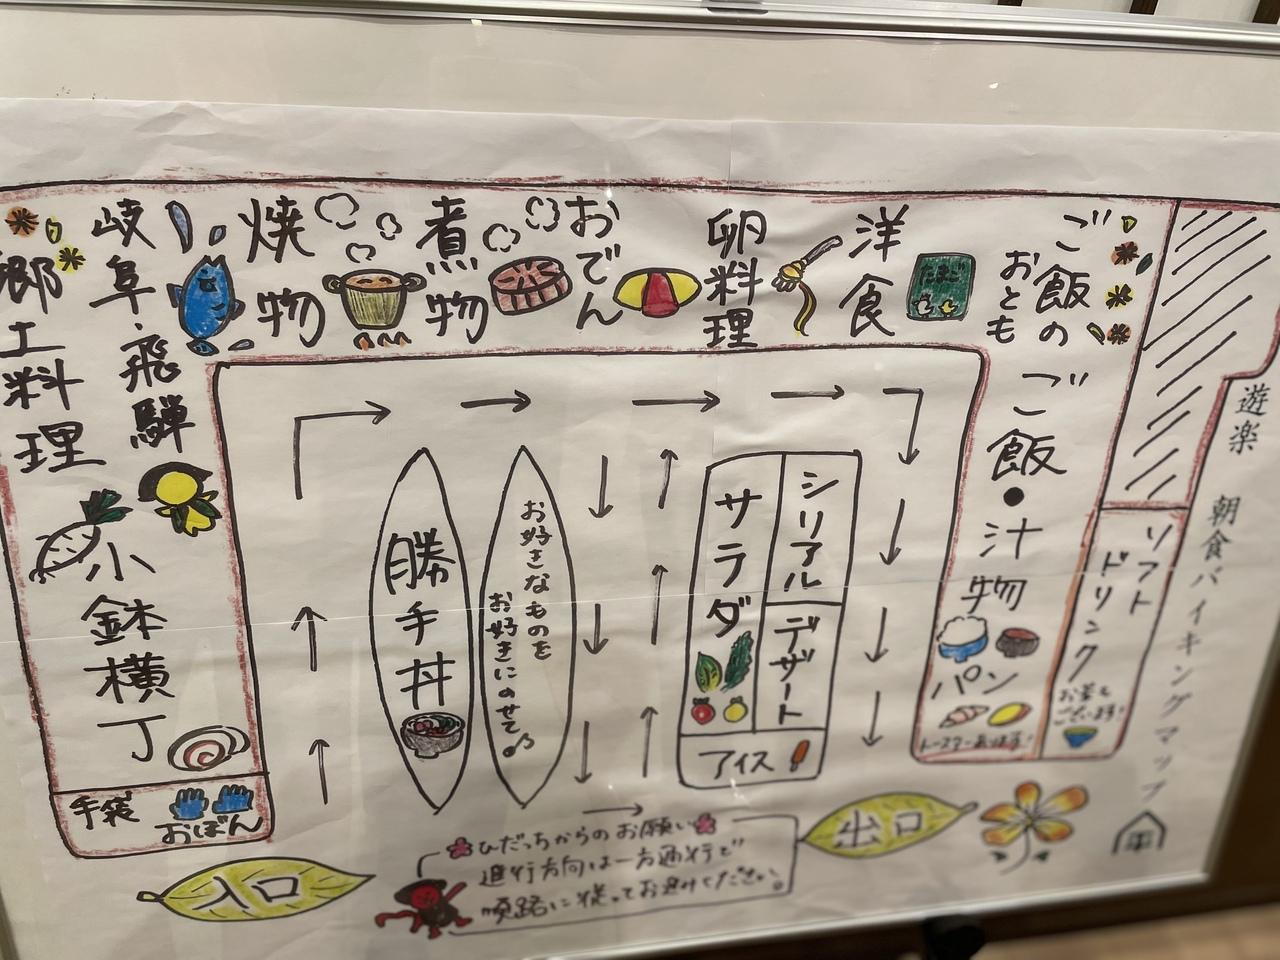 遊楽 朝食バイキングマップ
入口
手袋
おぼん
小鉢横丁
岐阜・飛騨
郷土料理
焼物
煮物
おでん
卵料理
洋食
たまご
ご飯の
おとも
ご飯・汁物
パン
トースターあります!
ソフト
ドリンク
お茶も
ございます!
勝手丼
お好きなものを
お好きにのせて♪
サラダ
シリアル
デザート
アイス
出口
ひだっちからのお願い
進行方向は一方通行で
順路に従ってお進みください。